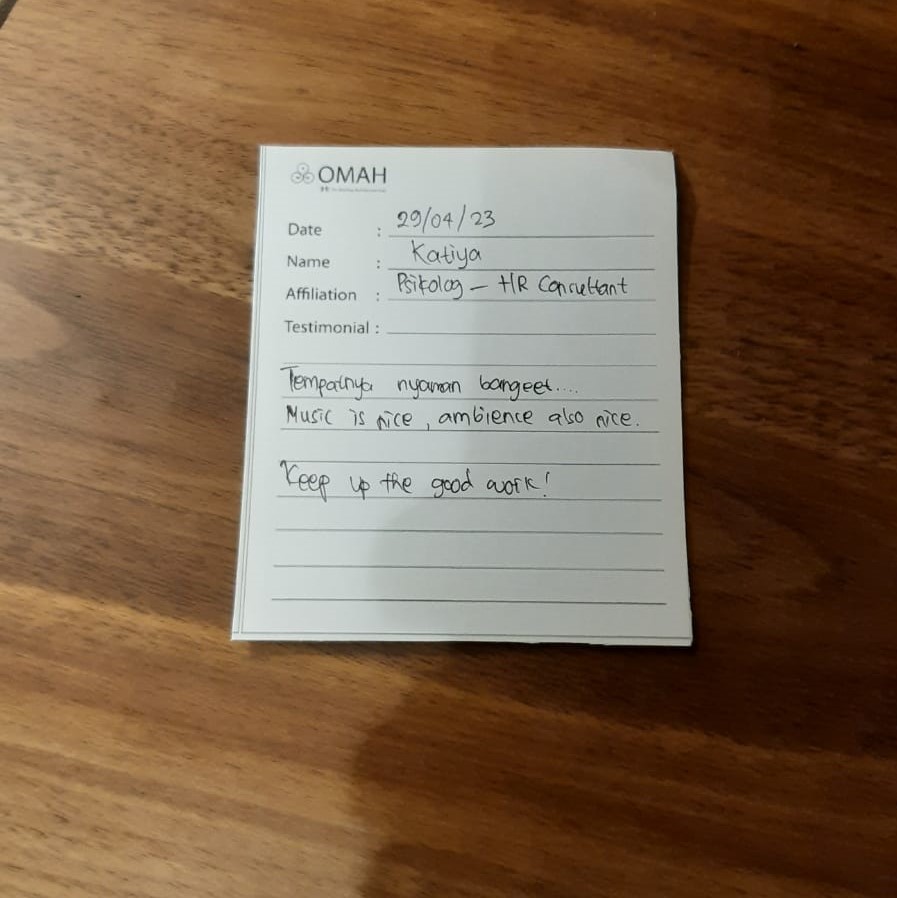 OMAH
Date : 29/04/23
Name : Katiya
Affiliation : Psikolog - HR Consultant
Testimonial :
Tempatnya nyaman bangeet....
Music is nice, ambience also nice.
Keep up the good work!